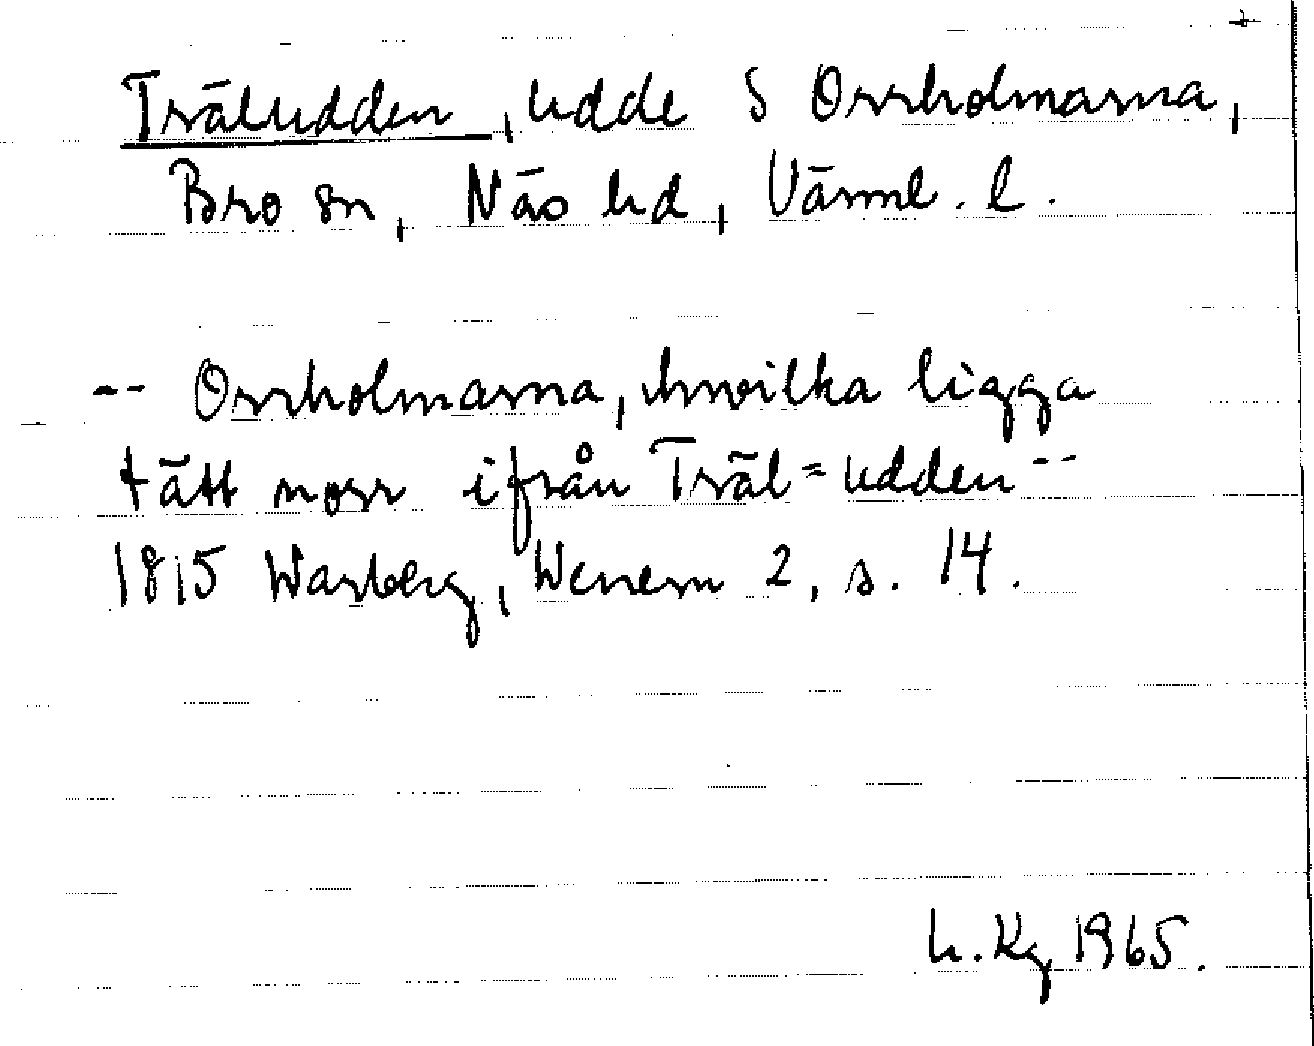 Träludden, udde S Orrholmarna,
Bro sn, Näs hd, Värml. l.
-- Orrholmarna, hwilka ligga
tätt norr ifrån Träl=udden --
1815 Warberg, Wenern 2, s. 14.
h. Kg 1965.